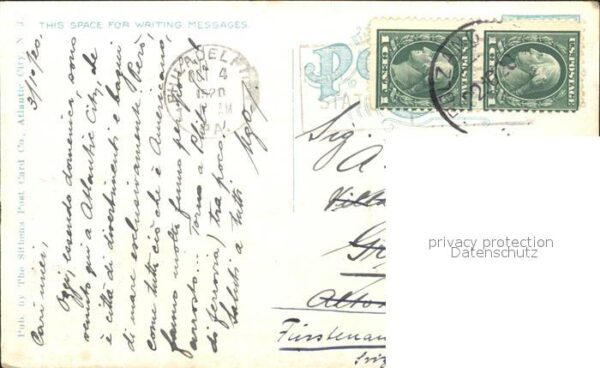 THIS SPACE FOR WRITING MESSAGES.
Pub. by The Sithens Post Card Co., Atlantic City, N. J.
3/10/20.
Cari miei,
Oggi, essendo domenica, sono
venuto qui a Atlantic City, che
è città di divertimenti e bagni
di mare esclusivamente. Però,
come tutto ciò che è Americano,
fanno molto fumo per poco
arrosto... Torno a Phila (2 h
di ferrovia) tra poco.
Saluti a tutti
Ugo
PHILADELPHIA
PA.
U.S. POSTAGE
1 CENT 1
U.S. POSTAGE
1 CENT 1
Sig.
A.
Villa
Gr
Altor
Fürstenau
Sviz
privacy protection
Datenschutz